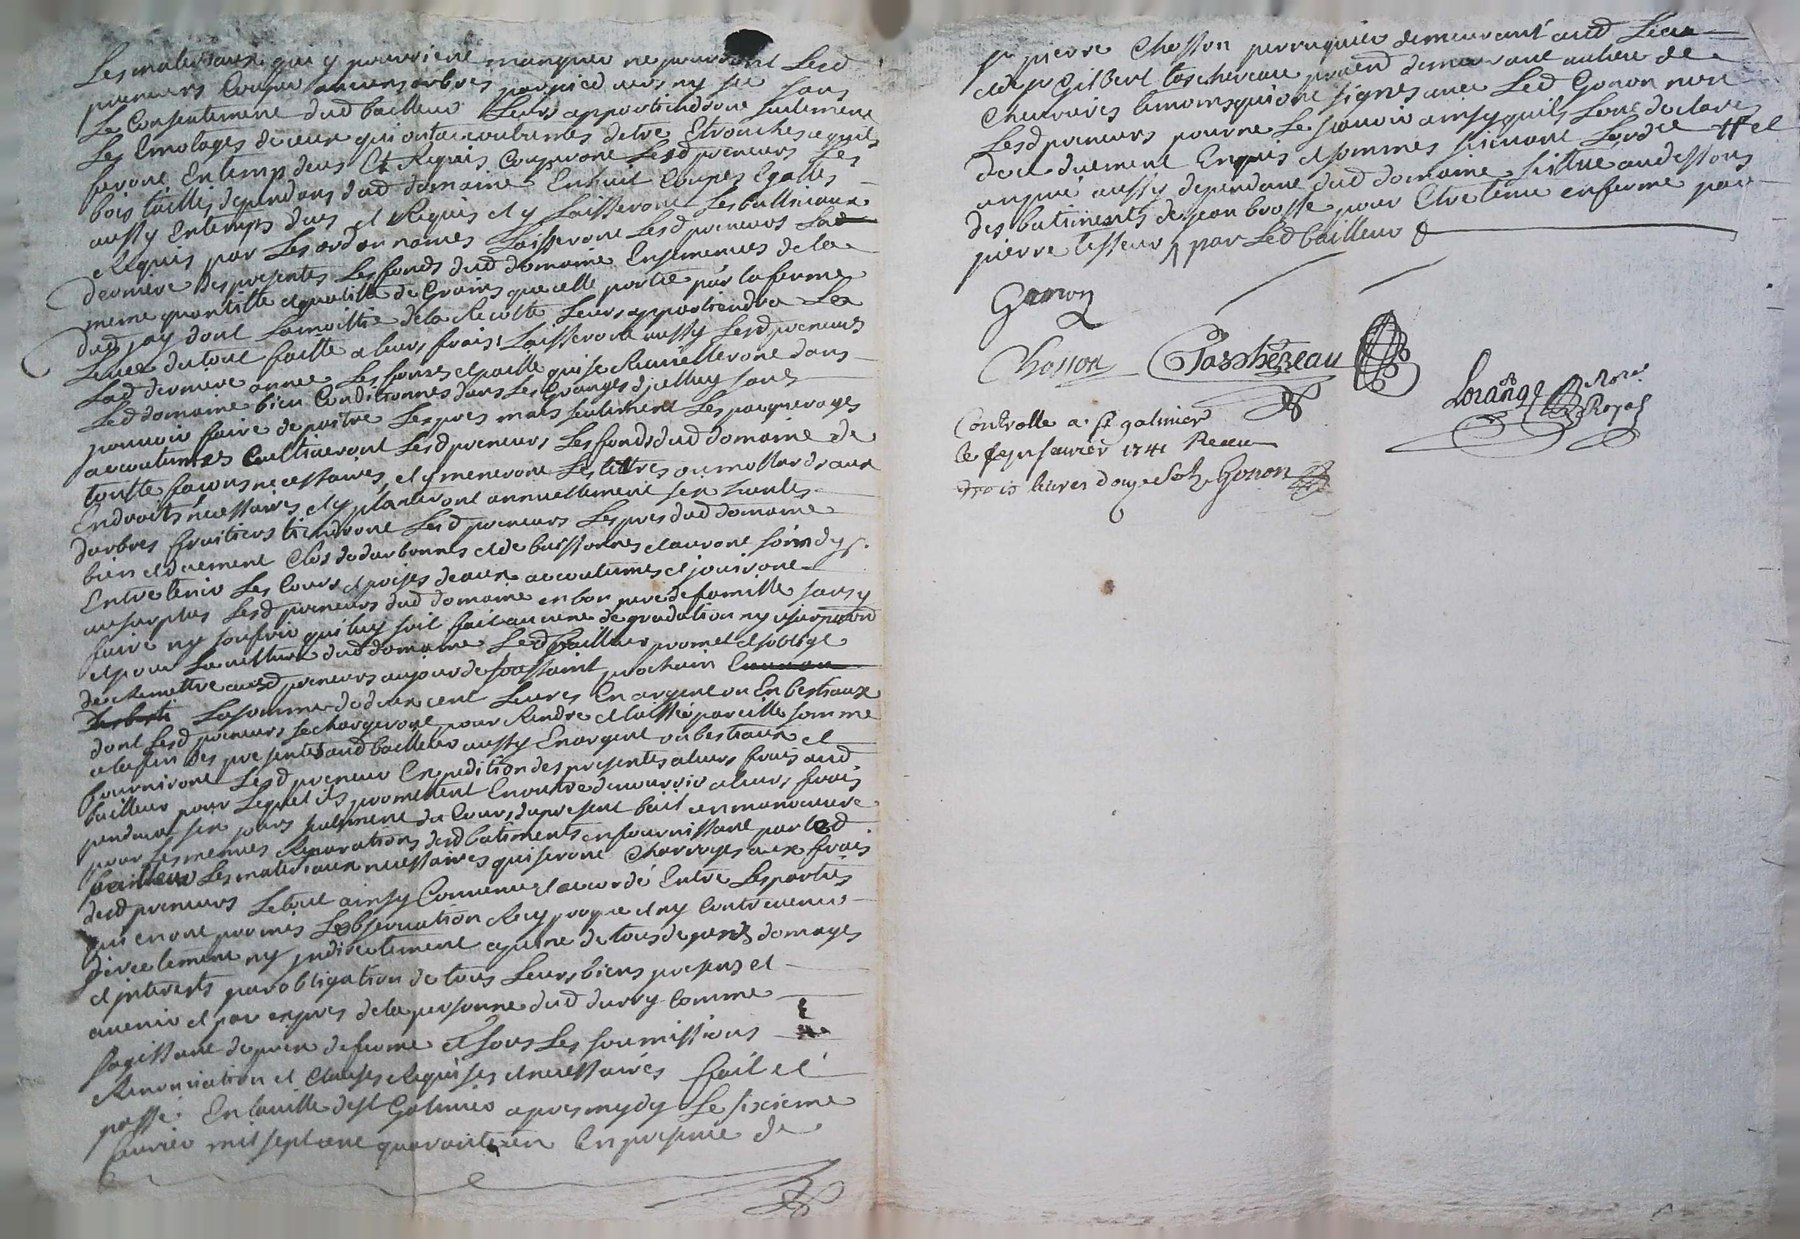 Les materiaux qui y pourrient manquer ne pourront Lesd
preneurs Couper aucuns arbres par pied vers ny sec sans
Le Consentement dud bailleur Leurs appartiendront seulement
Les Emolages de ceux qui ont accoutumes detre Etronches quils
feront En temps deus Et Requis Couperont Lesd preneurs Les
bois taillis dependans dud domaine En huit Coupes Egalles
aussy En temps deus et Requis et y Laisseront Les balliveaux
Requis par Les ordonnances Laisseront Lesd preneurs Lad
derniere des presentes Les fonds dud domaine Ensemences de la
meme quantitté et qualitté de Grains que celle portée par la ferme
dud jay dont La moittie de la Recolte Leurs appartiendra La
Levee du tout faitte a leurs frais Laisseront aussy Lesd preneurs
Lad derniere année Les foins et paille qui se Recuelleront dans
Led domaine bien Conditionnes dans Les Granges dicelluy sans
pouvoir faire depaitre Les pres mais seulement Les paquerages
accoutumes Cultiveront Lesd preneurs Les fonds dud domaine de
toutte facons necessaires, et y meneront Les tettres ou mottes
Endroits necessaires et y planteront annuellement six
darbres fruitiers tiendront Lesd preneurs Les pres dud domaine
bien et duement Clos de et de buissonnes et auront soin dy
Entretenir Les Cours et prises deaux accoutumes et jouiront
au surplus Lesd preneurs dud domaine en bon pere de famille sans y
faire ny soufrir quil luy soit fait aucune degradation ny
et pour La culture dud domaine Led bailleur promet et soblige
de Remettre auxd preneurs au jour de toussaint prochain
La somme de deux cent Livres En argent ou En bestiaux
dont Lesd preneurs se chargeront pour Rendre et laisser pareille somme
a la fin des presentes aud bailleur aussy En argent ou bestiaux et
fourniront Lesd preneur Expedition des presentes a leurs frais aud
bailleur pour Lequel ils promettent En outre de nourrir a leurs frais
pendant six jours seulement du Cours du present bail un manoeuvre
pour Les menues Reparations desd batiments en fournissant par led
bailleur Les materiaux necessaires qui seront Charroyes aux frais
desd preneurs Le tout ainsy Convenu et accordé Entre Les parties
qui en ont promis Lobservation Reciproque et ny Contrevenir
directement ny indirectement a peine de tous depends domages
et interests par obligation de tous Leurs biens presens et
avenir et par expres de la personne dud durry Comme
sagissant de prix de ferme et sous Les soumissions
Renonciation et Clauses Requises et necessaires fait et
passé En la ville de st Galmier apres mydy Le sixieme
fevrier mil sept cent quarante un En presence de
sr pierre Chosson perruquier demeurant aud Lieu
et de sr Gilbert taschereau demeurant au lieu de
Cheuvrieres temoins qui ont signes avec Led Gonon non
Lesd preneurs pour ne Le scavoir ainsy quils Lont declares
de ce duement Enquis et sommes suivant Lordce # et
aussy dependant dud domaine situe au dessous
des batiments de jean brosse pour Etre tenu en ferme par
pierre tisseur par Led bailleur
Gonon
Chosson Taschereau
Lorange Nore Royal
Controllé a st galmier
le fevrier 1741 Receu
trois livres douze sols Gonon